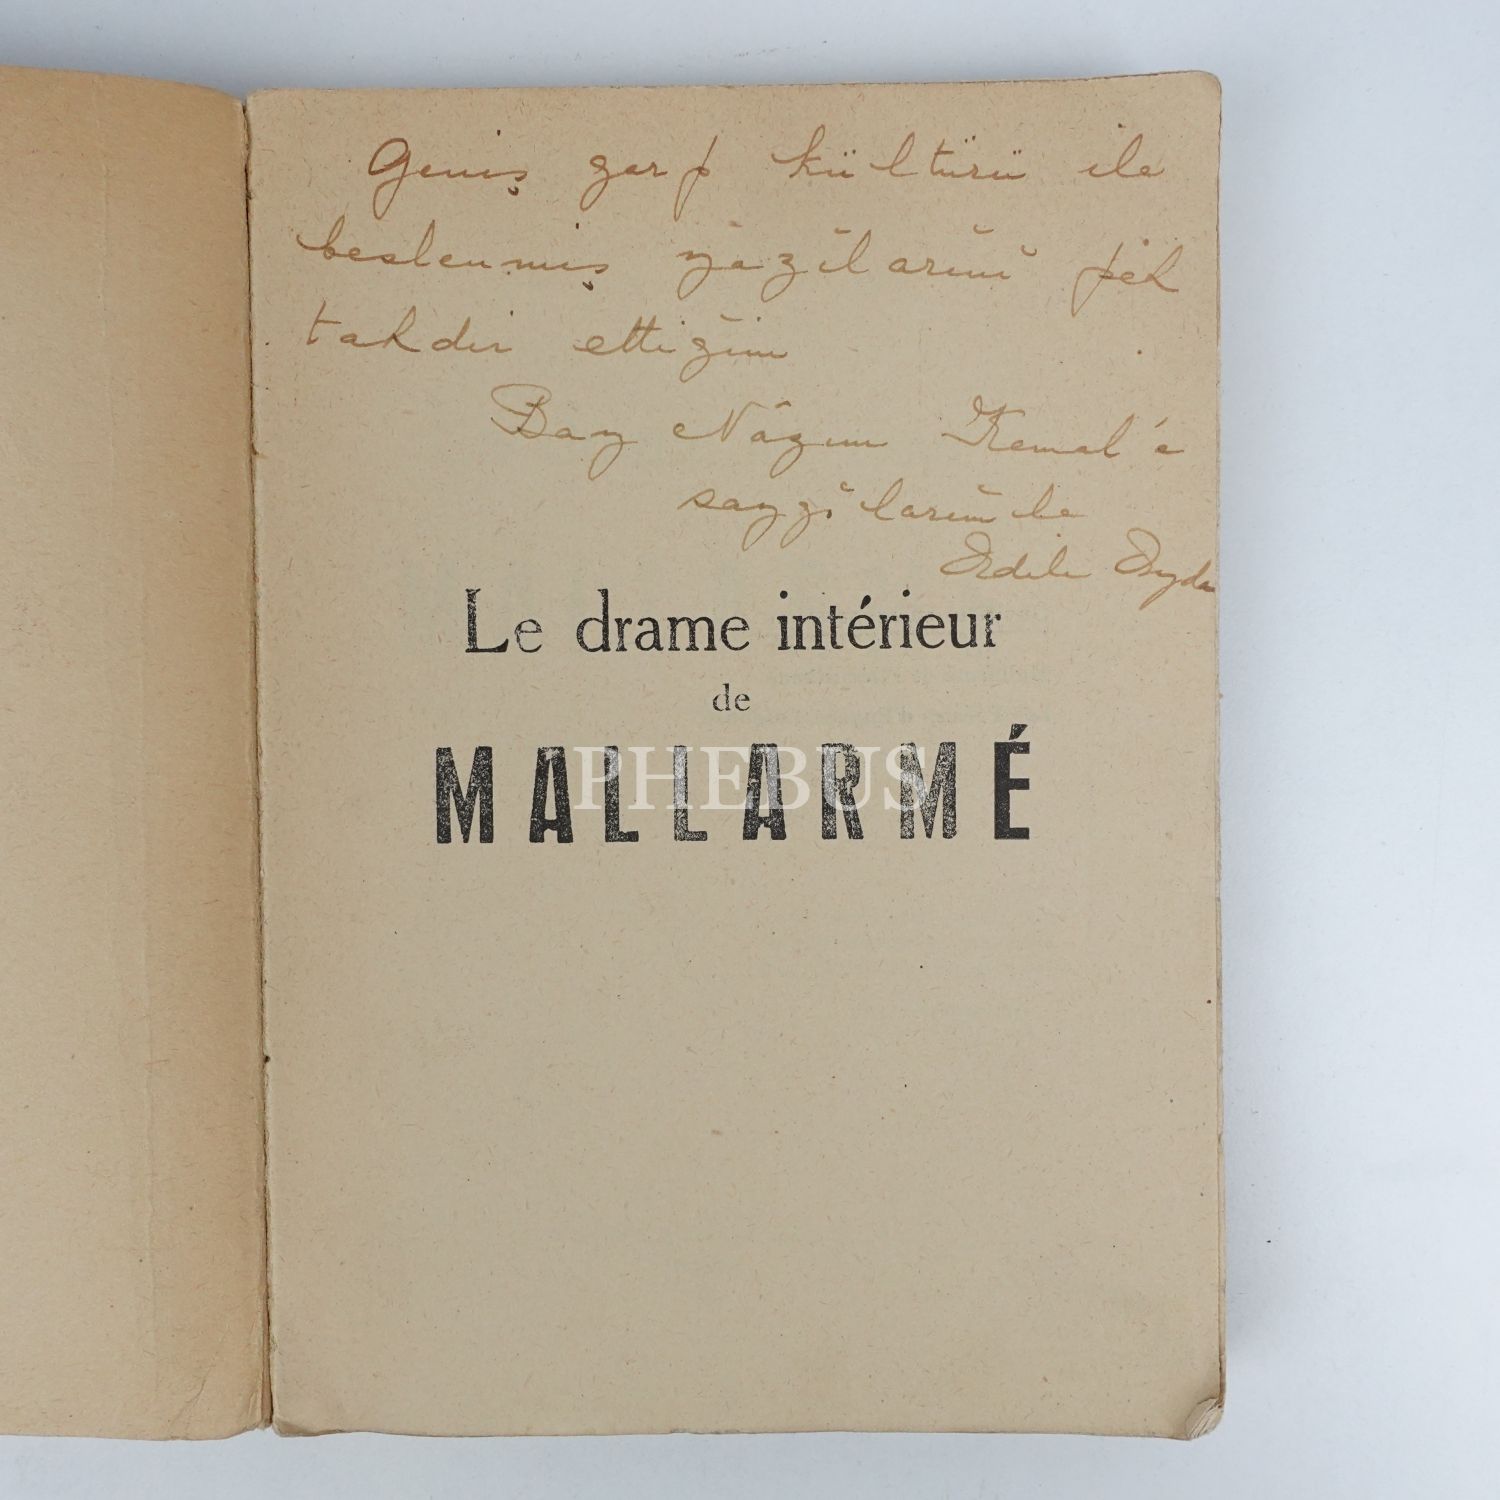 Geniş garp kültürü ile
beslenmiş yazılarını pek
takdir ettiğim
Bay Nâzım Kemal'e
saygılarımla
Adile Ayda
Le drame intérieur
de
MALLARMÉ
PHEBUS